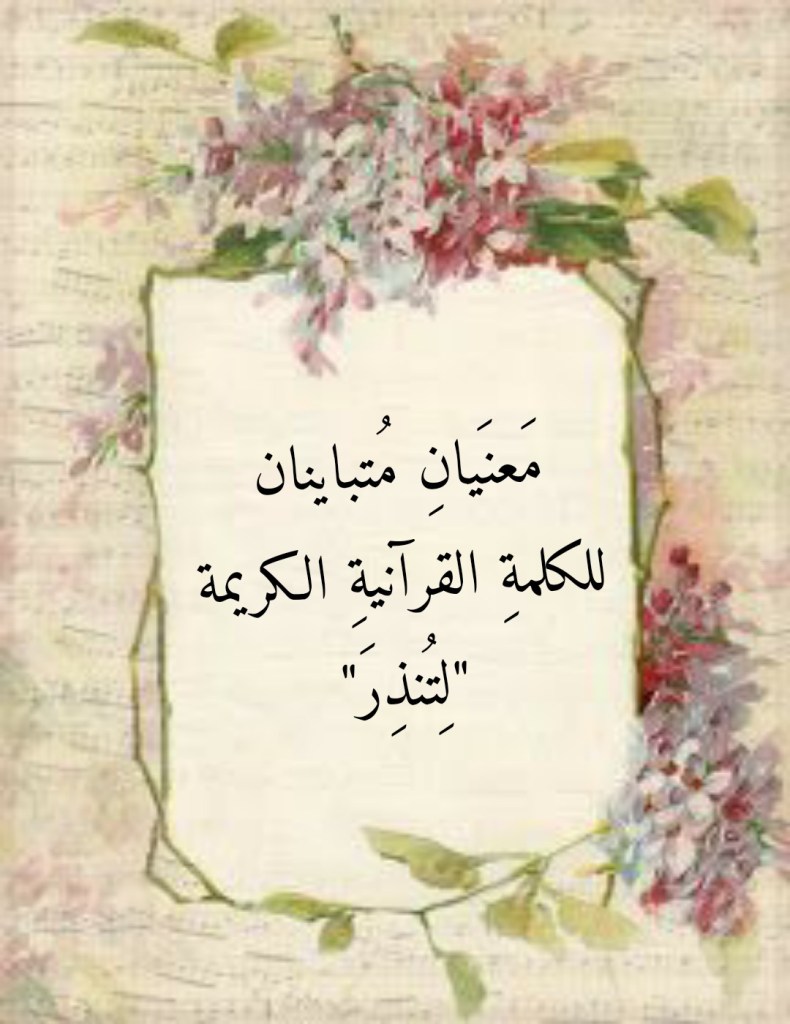 مَعنَيَانِ مُتباينان
للكلمةِ القرآنيةِ الكريمة
"لِتُنذِرَ"